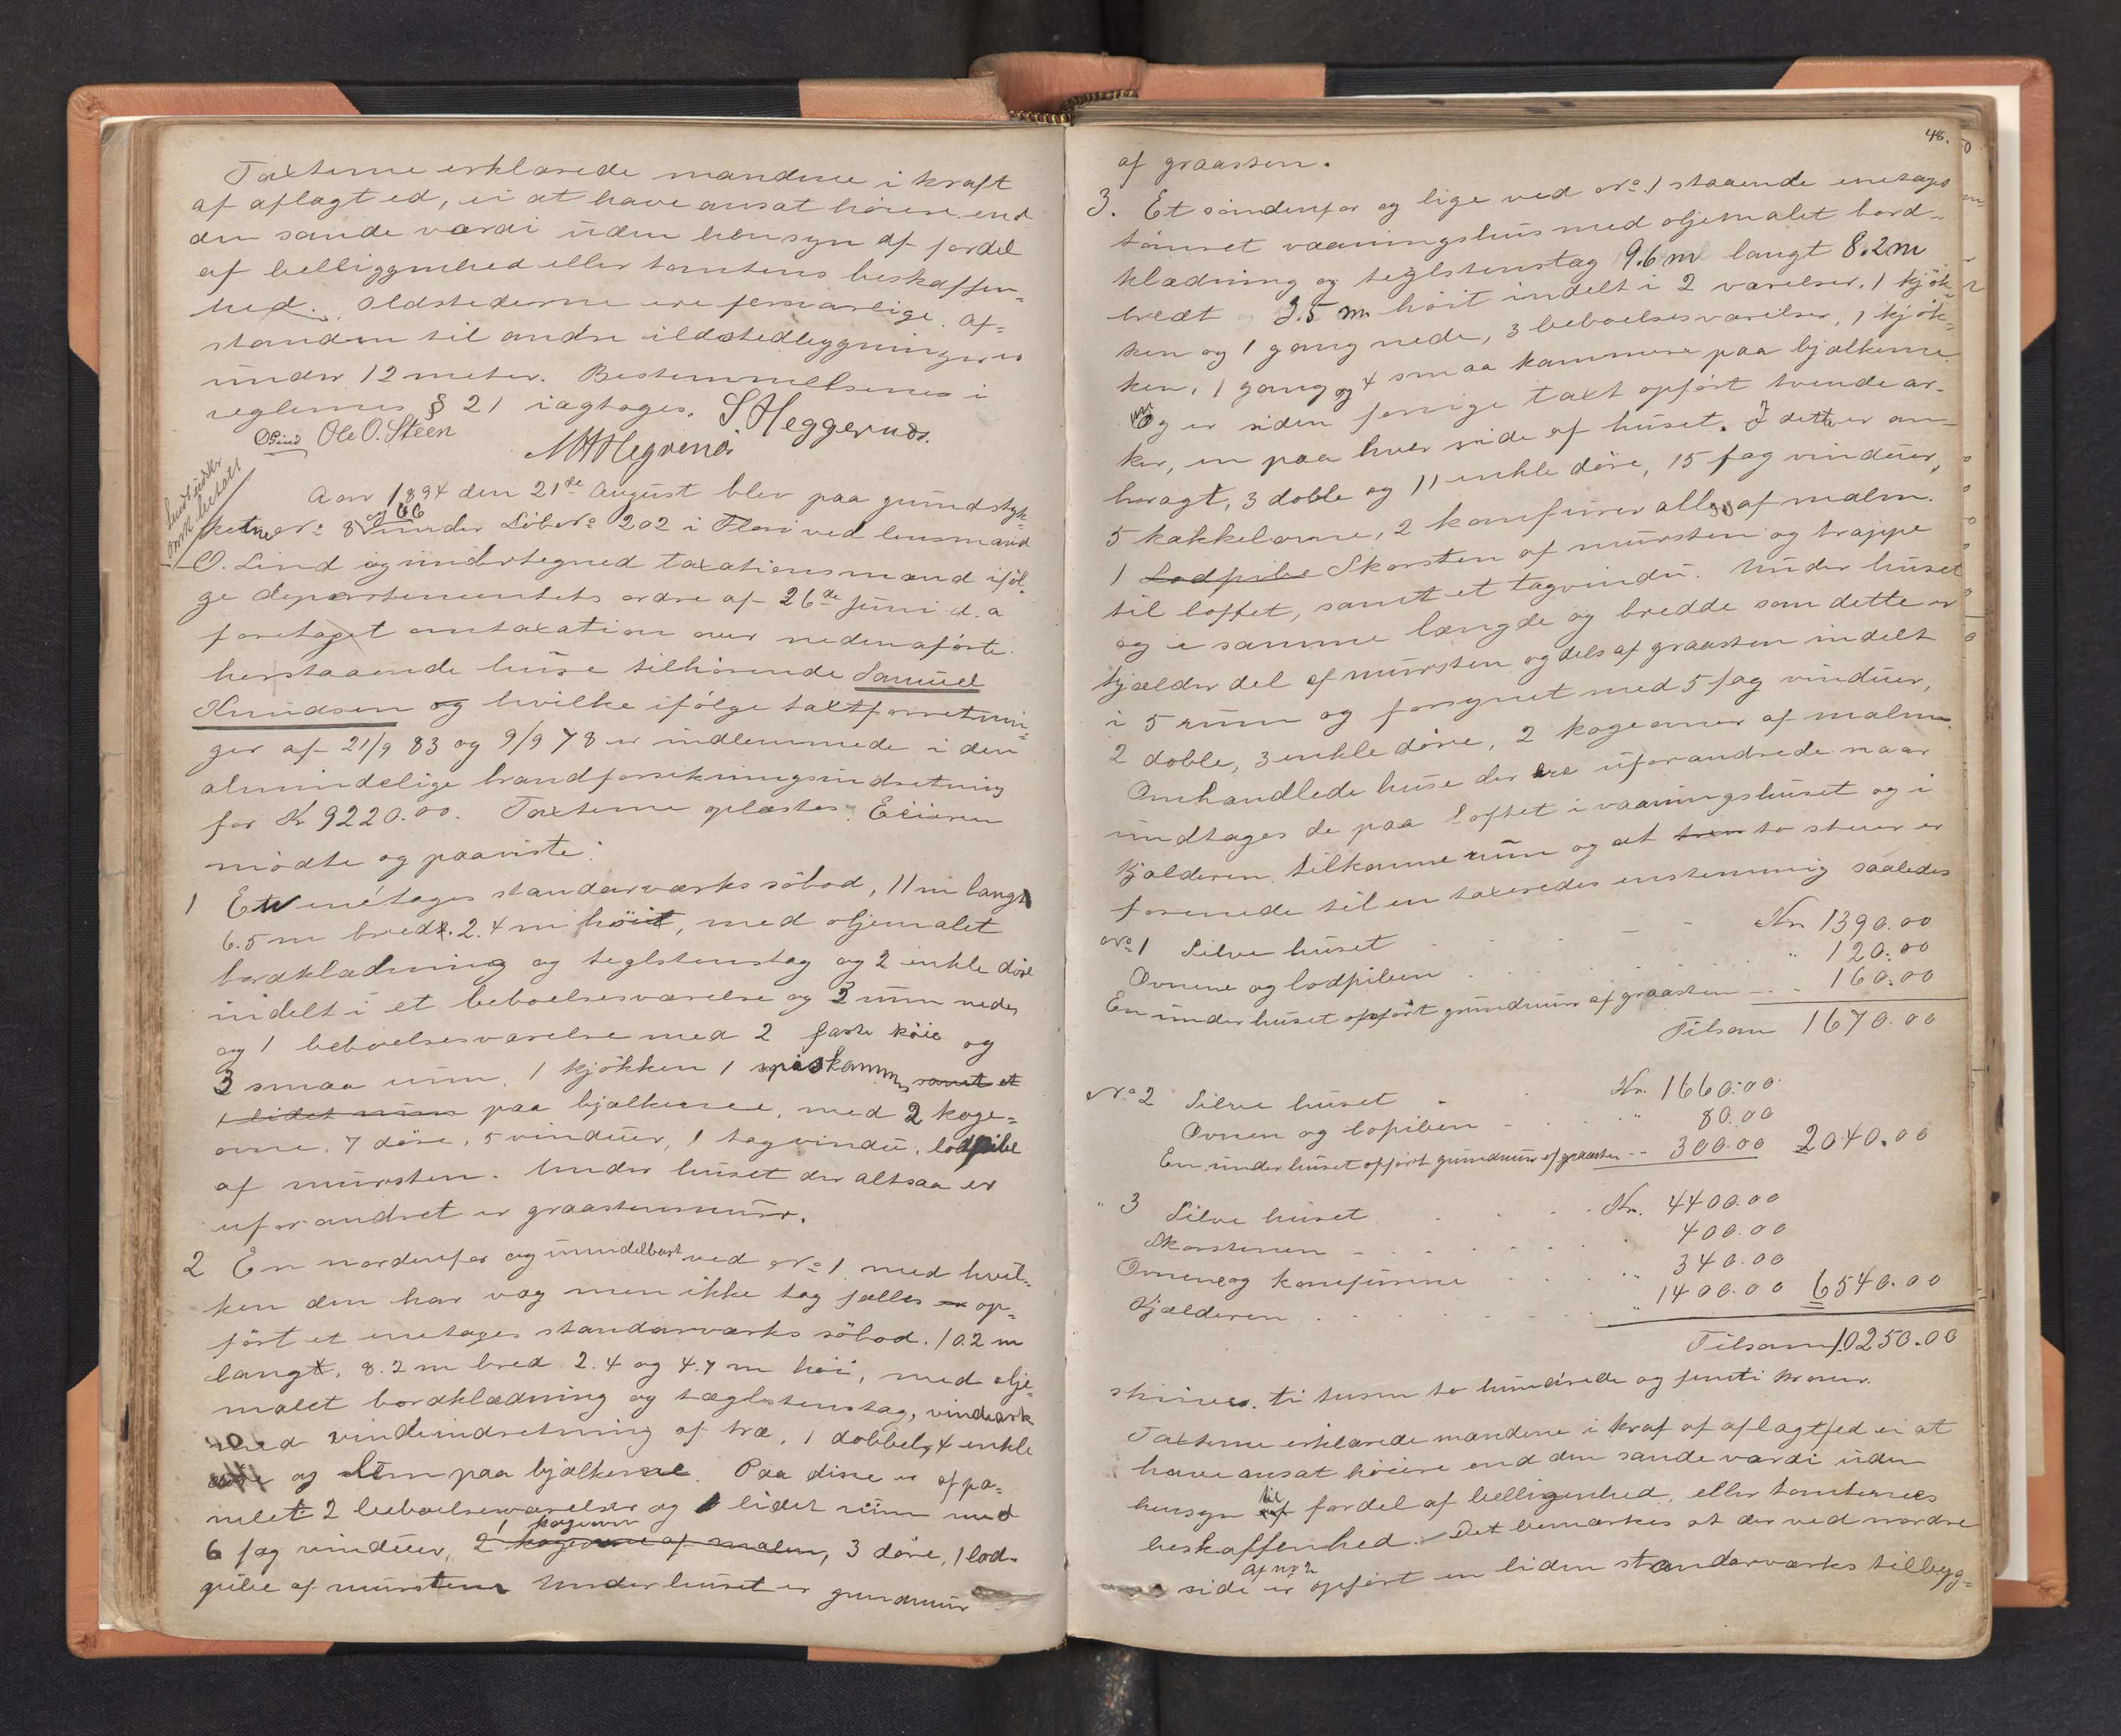 Taxterne erklærede mændene i kraft
af aflagt ed, ei at have ansat höiere end
den sande værdi uden hensyn af fordel
af belliggenhed eller tomtens beskaffen=
hed. Ildstederne ere forsvarlige. Af=
standen til andre ildstedbygninger er
under 12 meter. Bestemmelserne i
reglernes § 21 iagtages. S Heggernæs.
OLind Ole O. Steen
Aar 1894 den 21de August blev paa grundstyk=
kerne No 8 og 66 under Löbe No 202 i Flora ved lensmand
O. Lind og undertegned taxationsmænd iföl=
ge departementets ordre af 26de Juni d. a
foretaget omtaxation over nedenaförte
herstaaende huse tilhörende Samuel
Knudsen og hvilke ifölge taxtforretnin=
ger af 21/9 83 og 9/9 78 er indlemmede i den
almindelige brandforsikringsindretning
for Kr 9220.00. Taxterne oplæstes. Eieren
mödte og paaviste:
1 En enetages standarværks söbod, 11 m lang
6.5 m bred. 2.4 m höit, med oljemalet
bordklædning og teglstenstag og 2 enkle döre
indelt i et beboelsesværelse og 3 rum nede,
og 1 beboelsesværelse med 2 faste köie og
3 smaa rum, 1 kjökken 1 spiskammer samt et
1 lidet rum paa bjælkerne, med 2 koge=
ovne, 7 döre, 5 vinduer, 1 tagvindu, lodpibe
af mursten. Under huset der altsaa er
uforandret er graastensmur.
2 En nordenfor og umidelbart ved No 1 med hvil=
ken den har væg men ikke tag fælles op=
fört et enetages standarværks söbod. 10.2 m
langt, 8.2 m bred 2.4 og 4.7 m höi, med olje=
malet bordklædning og tæglstenstag, vindeark
med vindeindretning af træ, 1 dobbelt, 4 enkle
döre og Lem paa bjælkerne. Paa disse er afpa=
nelet 2 beboelsesværelser og 1 lidet rum med
6 fag vinduer, 2 1 kogeovn kogeovne af malm, 3 döre, 1 lod=
pibe af mursten Under huset er grundmur
48.
af graasten.
3. Et söndenfor og lige ved No 1 staaende enetages
tömret vaaningshus med oljemalet bord=
klædning og teglstenstag 9.6 m langt 8.2 m
bredt 3.5 m höit indelt i 2 værelser, 1 kjök=
ken og 1 gang nede, 3 beboelsesværelser, 1 kjök=
ken, 1 gang og 4 smaa kammere paa bjælkerne
Og er siden forrige taxt opfört tvende ar=
ker, en paa hver side af huset. I dette er an=
bragt, 3 doble og 11 enkle döre, 15 fag vinduer,
5 kakkelovne, 2 komfurer alle af malm.
1 Lodpibe Skorsten af mursten og trappe
til loftet, samt et tagvindu. Under huset
og i samme længde og bredde som dette er
kjælder del af mursten og dels af graasten indelt
i 5 rum og forsynet med 5 fag vinduer,
2 doble, 3 enkle döre, 2 kogeovner af malm.
Omhandlede huse der ere uforandrede naar
undtages de paa loftet i vaaningshuset og i
kjælderen tilkomne rum og at to stuer er
forenede til en taxeredes enstemmig saaledes
No 1 Selve huset Kr 1390.00
Ovnene og lodpiben " 120.00
En under huset opfört grundmur af graasten " 160.00
Tilsam 1670.00
No 2 Selve huset Kr. 1660.00
Ovnen og lopiben " 80.00
En under huset opfört grundmur af graasten 300.00 2040.00
" 3 Selve huset Kr. 4400.00
Skorstenen 400.00
Ovnene og komfurerne " 340.00
Kjælderen " 1400.00 6540.00
Tilsam 10250.00
skriver ti tusen to hundrede og femti kroner.
Taxterne erklærede mændene i kraf af aflagt ed ei at
have ansat höiere end den sande værdi uden
hensyn til fordel af belligenhed, eller tomternes
beskaffenhed. Det bemærkes at der ved nordre
side af no 2 er opfört en liden standarværks tilbyg=